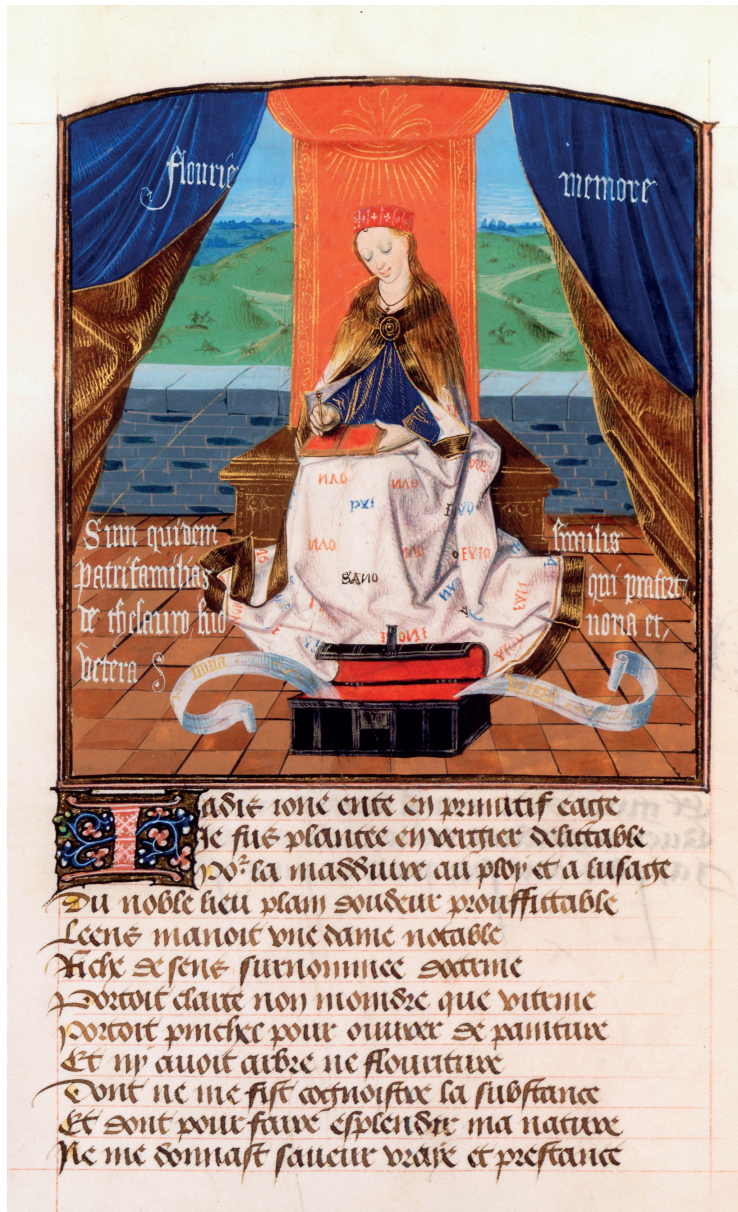 flourie memore
Sum quidem similis
patrifamilias qui profert
de thesauro, suo noua et,
vetera
noua
Iadis ione ente en primitif eage
Je fus plantee en vergier delictable
Por la madduire au ploy et a lusage
Du noble lieu plain doudeur prouffictable
Leens manoit vne dame notable
Riche de sens surnommee doctrine
Portoit clarte non moindre que vitrine
Portoit pinchel pour ouurer de painture
Et ny auoit arbre ne flouriture
Dont ne me fist cognoistre la substance
Et dont pour faire esplendir ma nature
Ne me donnast saueur vraye et prestance